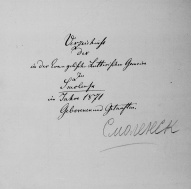 Verzeichniss
der
in der Evangelisch Lutherischen Gemeine
zu
Smolensk
im Jahre 1871
Geborenen und Getauften.
Смоленск